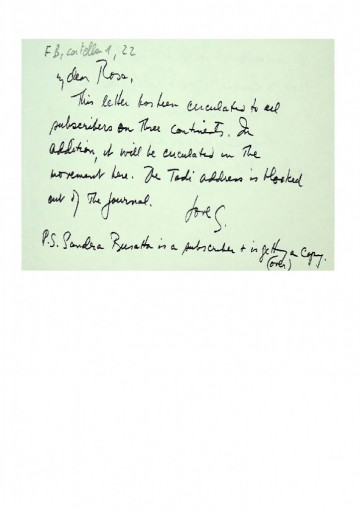 F B, cartella 1, 22
My dear Rosa,
This letter has been circulated to all
subscribers on three continents. In
addition, it will be circulated in the
movement here. The Todi address is blocked
out of the Journal.
Love G.
P.S. Sandra Busatta is a subscriber + is getting a copy.
(over)